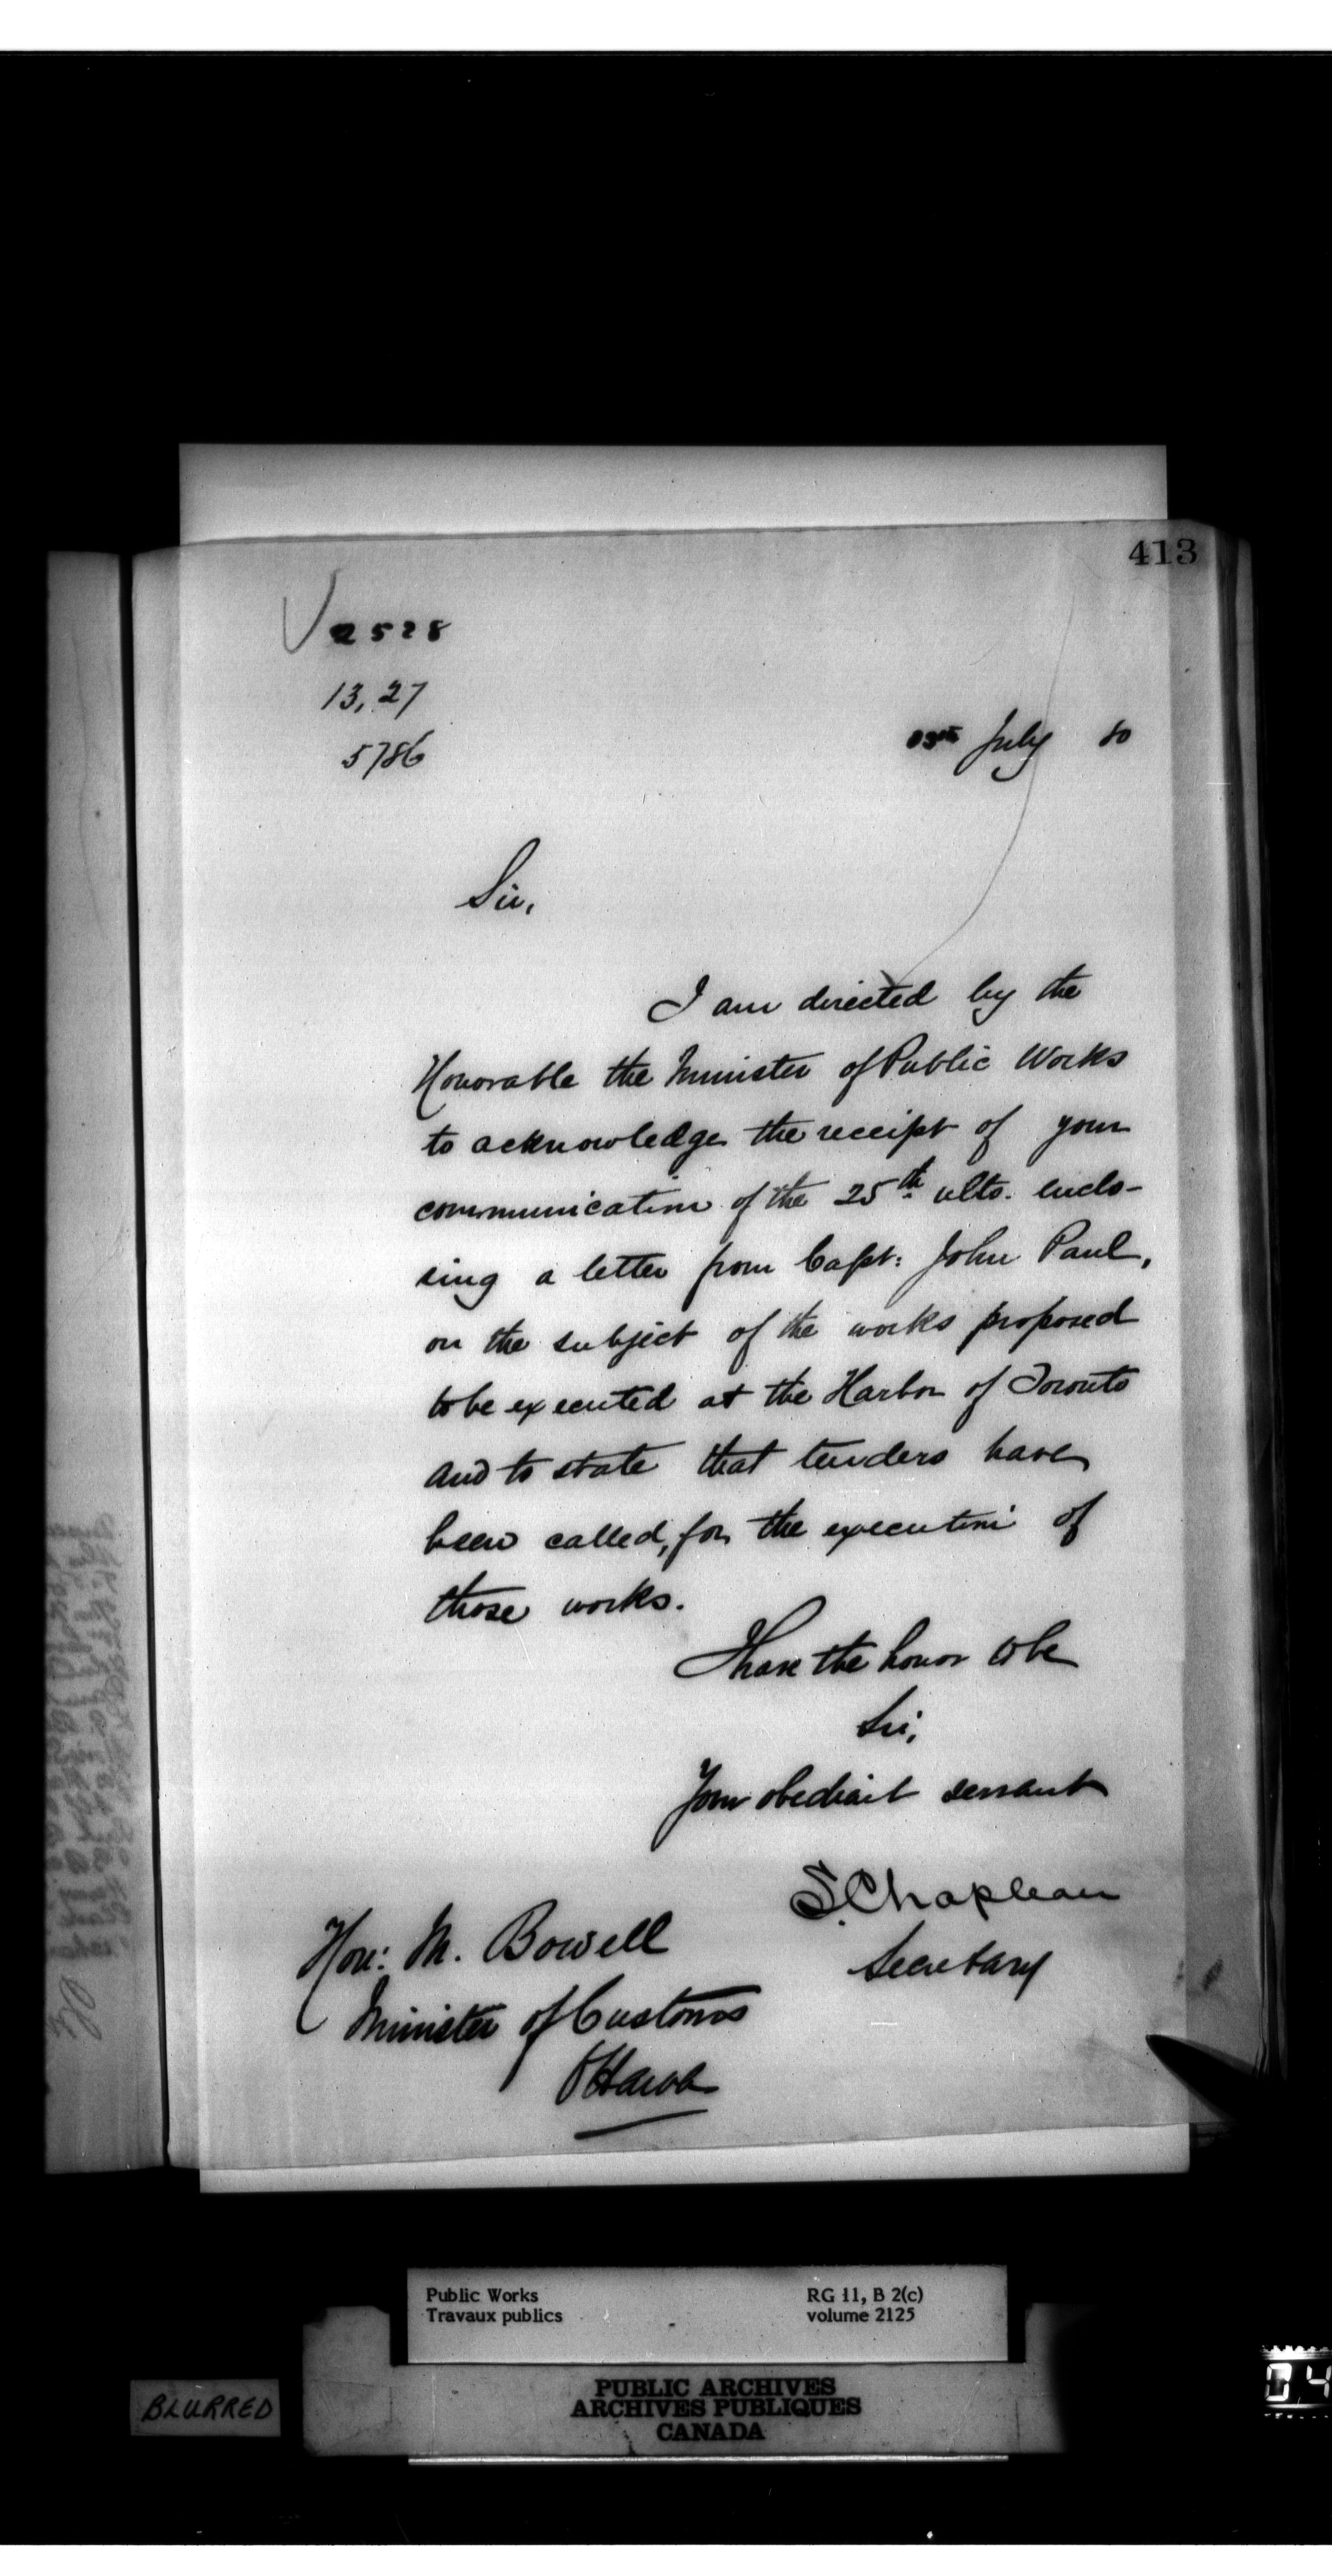 413
2528
13,27
5786
July 80
Sir,
I am directed by the
Honorable the Minister of Public Works
to acknowledge the receipt of your
communication of the 25th ulto. enclo-
sing a letter from Capt: John Paul,
on the subject of the works proposed
to be executed at the Harbor of Toronto
and to state that tenders have
been called, for the execution of
those works.
I have the honor to be
Sir,
Your obedient servant
S. Chapleau
Secretary
Hon: M. Bowell
Minister of Customs
Ottawa
Public Works
Travaux publics
RG 11, B 2(c)
volume 2125
BLURRED
PUBLIC ARCHIVES
ARCHIVES PUBLIQUES
CANADA
04